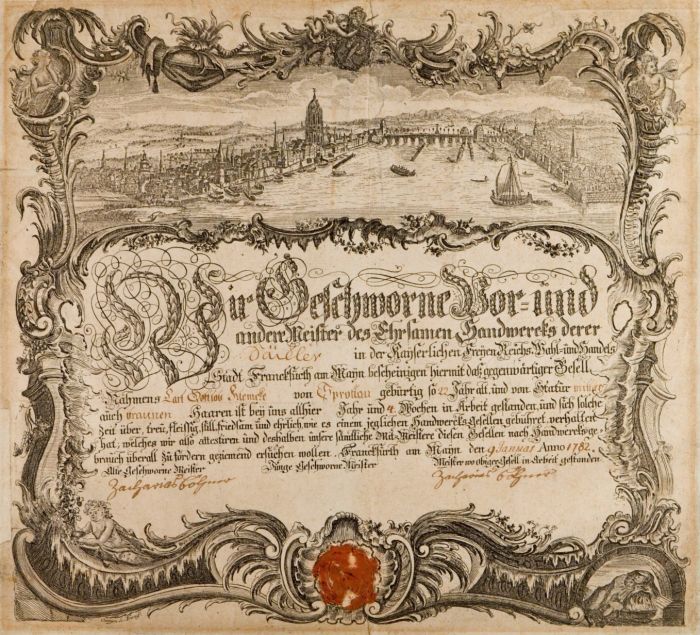 Wir Geschworne Vor- und
andere Meister des Ehrsamen Handwercks derer
in der Kayserlichen Freyen Reichs, Wahl- und Handels
Stadt Franckfurth am Mayn bescheinigen hiermit daß gegenwärtiger Gesell
Nahmens Carl von Sprottau gebürtig so 22 Jahr alt, und von Statur mittel
auch braunen Haaren ist bei uns allhier Jahr und 4 Wochen in Arbeit gestanden, und sich solche
Zeit über, treu, fleissig, still, friedsam und ehrlich, wie es einem jeglichen Handwercks-Gesellen gebühret, verhalten
hat, welches wir also attestiren und deshalben unsere sämtliche Mit-Meistere diesen Gesellen nach Handwercksge-
brauch überall zu fördern geziemend ersuchen wollen. Franckfurth am Mayn den 9 Januar Anno 1782.
Alte Geschworne Meister Junge Geschworne Meister Meister wo obiger Gesell in Arbeit gestanden
Zacharias Böhmer Zacharias Böhmer